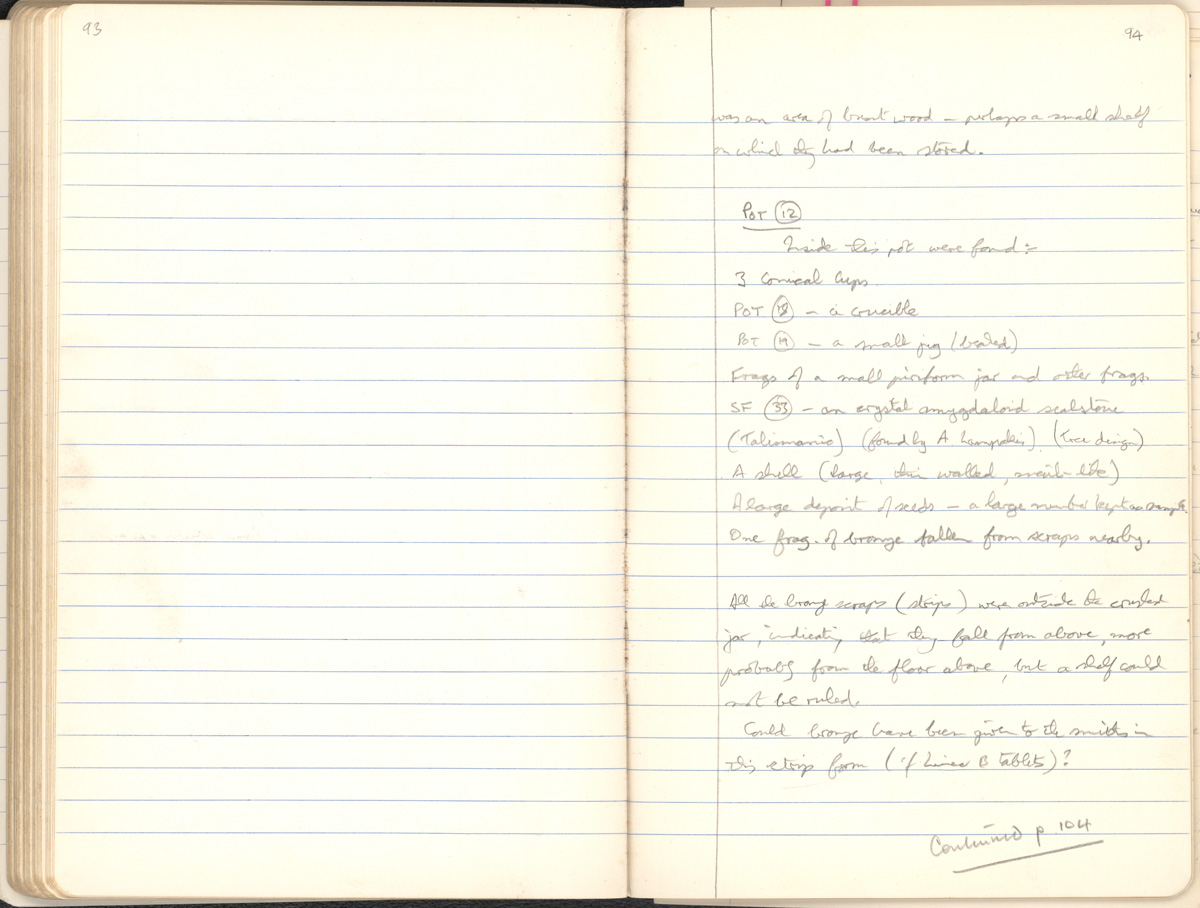 93
94
was an area of burnt wood – perhaps a small shelf
on which they had been stored.
POT 12
Inside this pot were found :-
3 conical cups
POT 18 – a crucible
POT 19 – a small jug (beaked)
Frags of a small piriform jar and other frags.
SF 33 – an crystal amygdaloid sealstone
(Talismanic) (found by A. Lampakis) (tree design)
A shell (large, thin walled, snail-like)
A large deposit of seeds – a large number kept as sample.
One frag. of bronze fallen from scraps nearby.
All the bronze scraps (strips) were outside the crushed
jar, indicating that they fall from above, more
probably from the floor above, but a shelf could
not be ruled.
Could bronze have been given to the smiths in
this strip form (cf Linear B tablets)?
Continued p 104